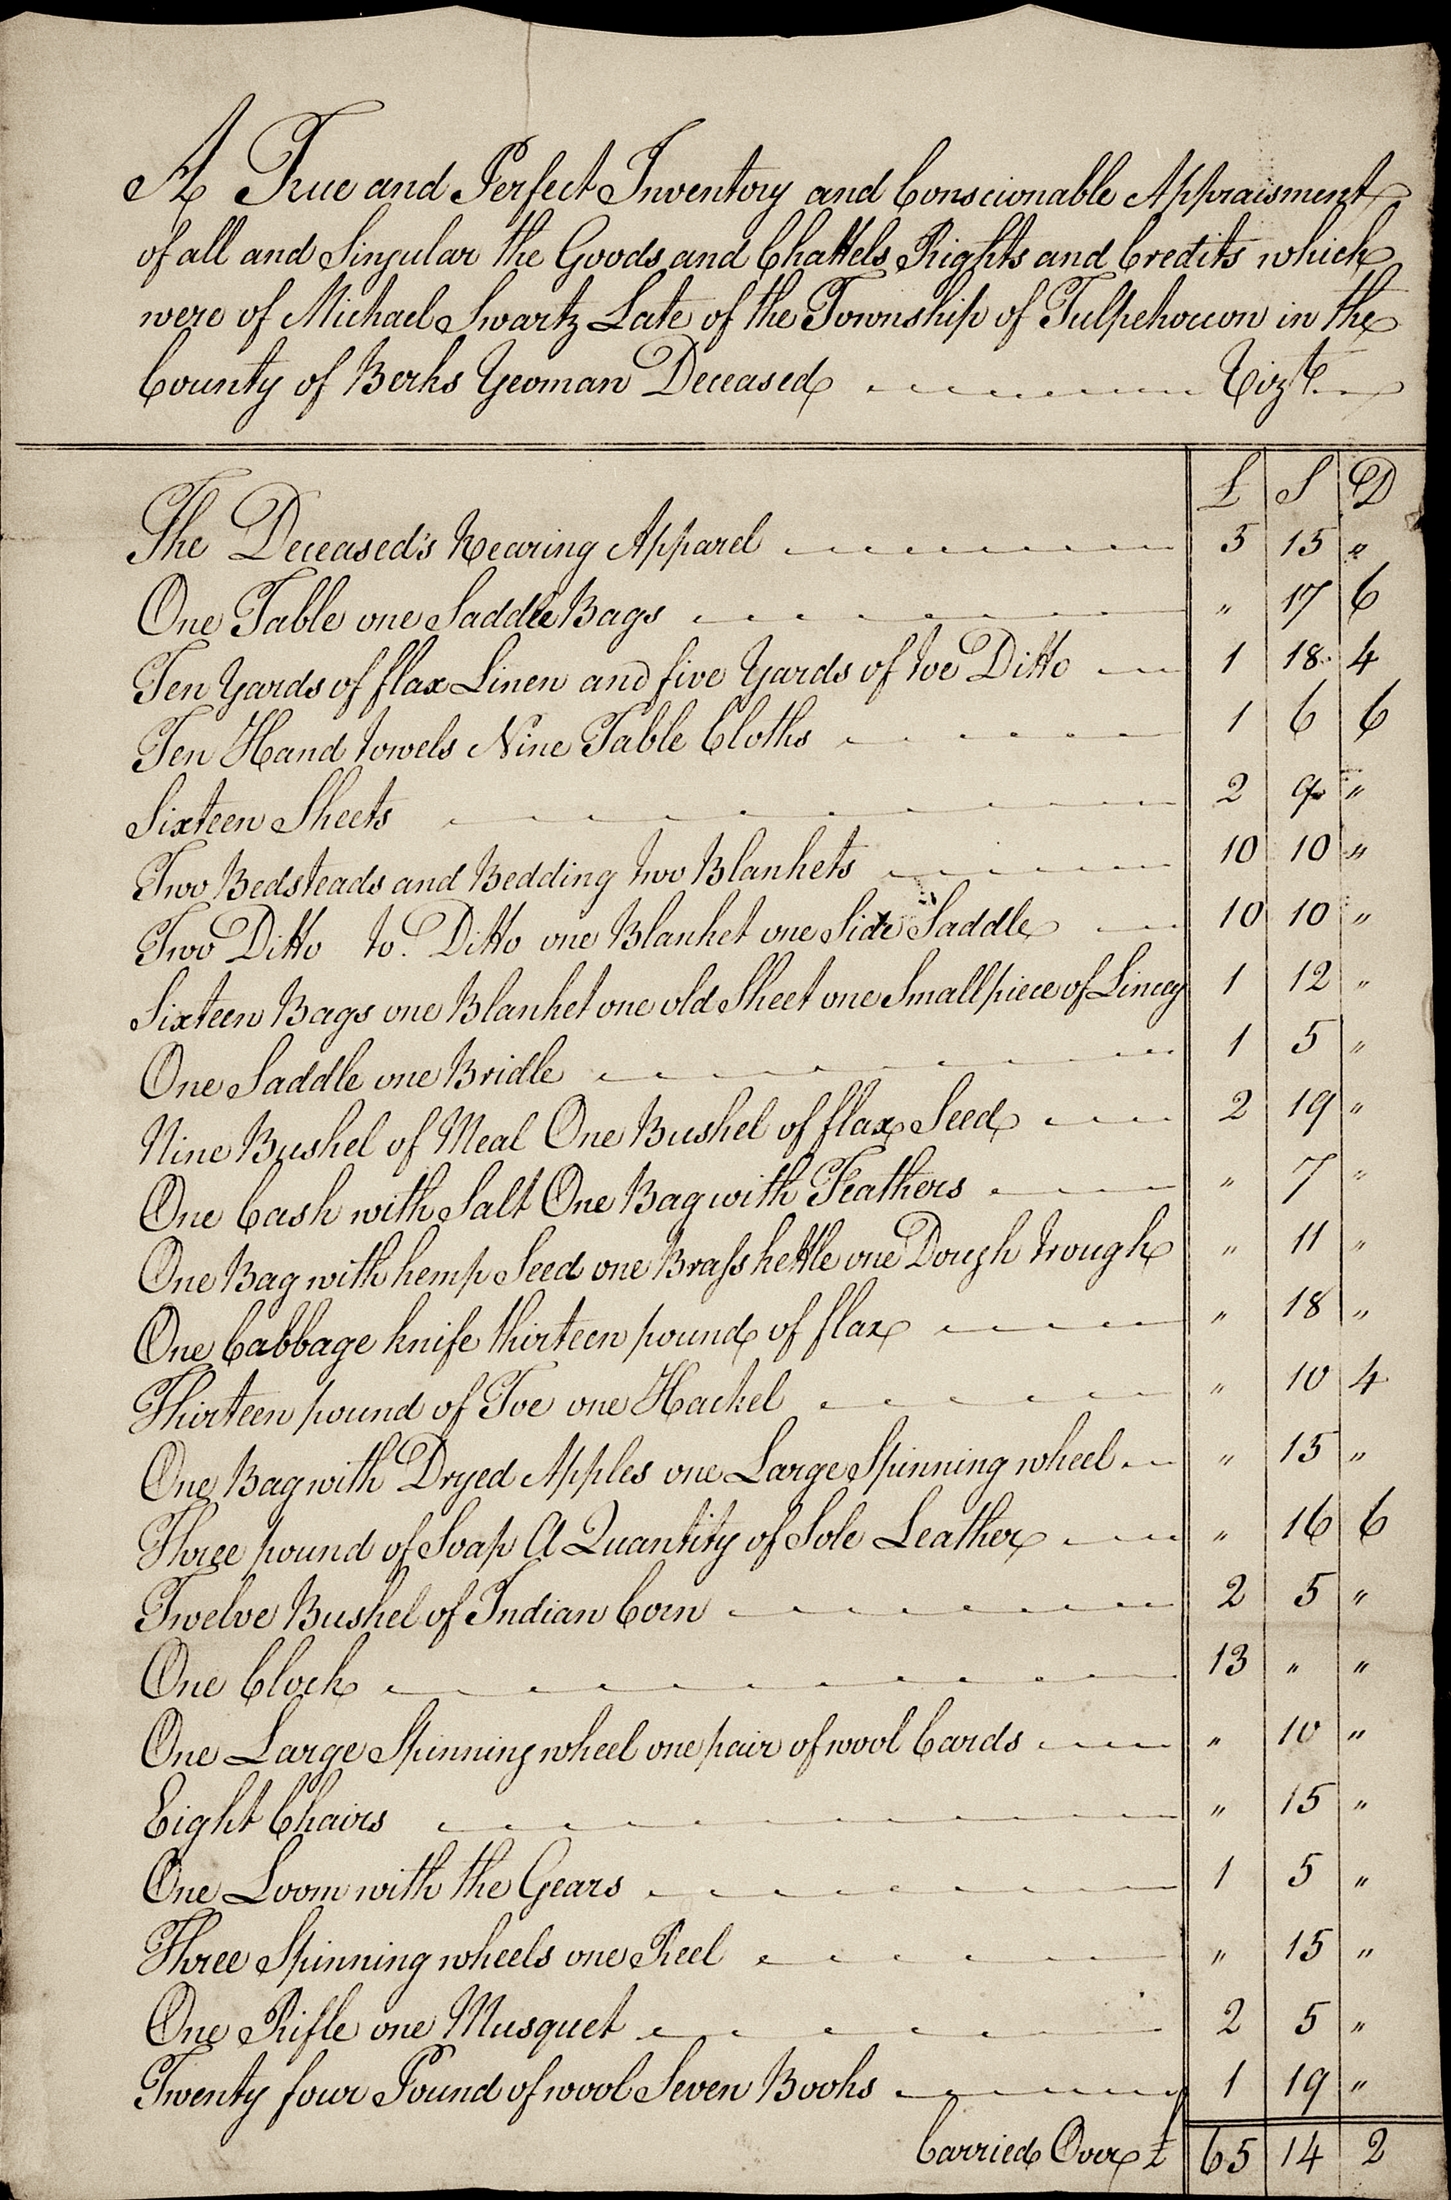 A True and Perfect Inventory and Conscionable Appraisment
of all and Singular the Goods and Chattels Rights and Credits which
were of Michael Swartz Late of the Township of Tulpehoccon in the
County of Berks Yeoman Deceased Vizt
£ S D
The Deceased's Wearing Apparel 5 15 "
One Table one Saddle Bags " 17 6
Ten Yards of flax Linen and five Yards of toe Ditto 1 18 4
Ten Hand towels Nine Table Cloths 1 6 6
Sixteen Sheets 2 9 "
Two Bedsteads and Bedding two Blankets 10 10 "
Two Ditto to. Ditto one Blanket one Side Saddle 10 10 "
Sixteen Bags one Blanket one old Sheet one Small piece of Lincey 1 12 "
One Saddle one Bridle 1 5 "
Nine Bushel of Meal One Bushel of flax Seed 2 19 "
One Cask with Salt One Bag with Feathers " 7 "
One Bag with hemp Seed one Brass kettle one Dough trough " 11 "
One Cabbage knife thirteen pound of flax " 18 "
Thirteen pound of Toe one Hackel " 10 4
One Bag with Dryed Apples one Large Spinning wheel " 15 "
Three pound of Soap A Quantity of Sole Leather " 16 6
Twelve Bushel of Indian Corn 2 5 "
One Clock 13 " "
One Large Spinning wheel one pair of wool Cards " 10 "
Eight Chairs " 15 "
One Loom with the Gears 1 5 "
Three Spinning wheels one Reel " 15 "
One Rifle one Musquet 2 5 "
Twenty four Pound of wool Seven Books 1 19 "
Carried Over £ 65 14 2